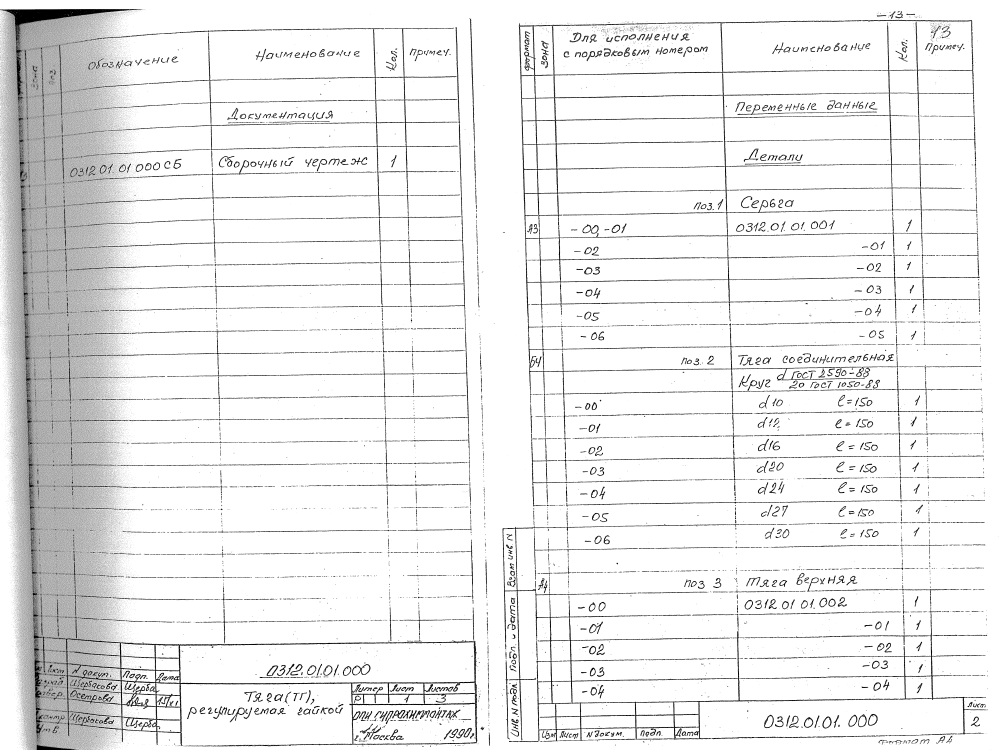 Зона
Поз.
Обозначение
Наименование
Кол.
Примеч.
Документация
0312.01.01 000 СБ Сборочный чертеж 1
0312.01.01.000
Тяга(ТГ),
регулируемая гайкой
Литер Лист Листов
Р 1 3
г. Москва 1990г.
Лист N докум. Подп. Дата
Щербакова Щерба
Острова
Щербакова Щерба.
Утв
-13-
13
Формат
Зона
Для исполнения
с порядковым номером
Наименование
Кол.
Примеч.
Переменные данные
Детали
поз.1 Серьга
А3 -00,-01 0312.01.01.001 1
-02 -01 1
-03 -02 1
-04 -03 1
-05 -04 1
-06 -05 1
Б4 поз. 2 Тяга соединительная
Круг d ГОСТ 2590-88
20 ГОСТ 1050-88
-00 d10 ℓ=150 1
-01 d12 ℓ=150 1
-02 d16 ℓ=150 1
-03 d20 ℓ=150 1
-04 d24 ℓ=150 1
-05 d27 ℓ=150 1
-06 d30 ℓ=150 1
А4 поз 3 Тяга верхняя
-00 0312.01 01.002 1
-01 -01 1
-02 -02 1
-03 -03 1
-04 -04 1
Взам инв N
Подп. и дата
Инв N подл.
Изм Лист N докум. Подп. Дата
0312.01.01. 000
Лист
2
Формат А4